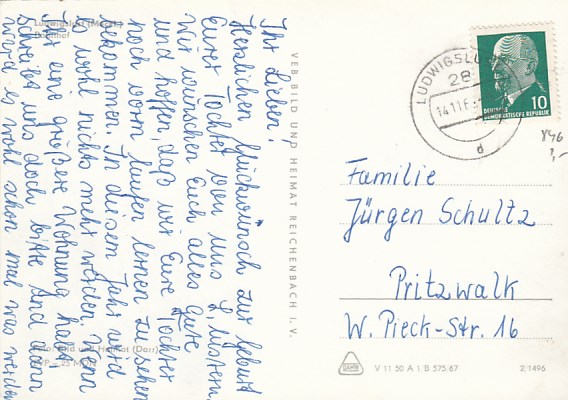 Ludwigslust (Meckl.)
Bahnhof
Ihr Lieben!
Herzlichen Glückwunsch zur Geburt
Eurer Tochter von uns
Wir wünschen Euch alles Gute
und hoffen, daß wir Eure Tochter
noch vorm laufen lernen zu sehen
bekommen. In diesem Jahr wird
es wohl nichts mehr werden. Wenn
Ihr eine größere Wohnung habt
schreibt uns doch bitte und dann
wird es wohl schon mal was werden
VEB BILD UND HEIMAT REICHENBACH I. V.
LUDWIGSLUST
28
14.11.6
d
10
DEUTSCHE
DEMOKRATISCHE REPUBLIK
846
Familie
Jürgen Schultz
Pritzwalk
W. Pieck-Str. 16
Bild und Heimat (Darr)
V 11 50 A 1, B 575/67
2/1496